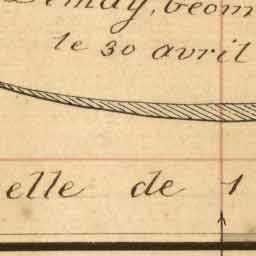 Lemay, Géom
le 30 avril
elle de 1